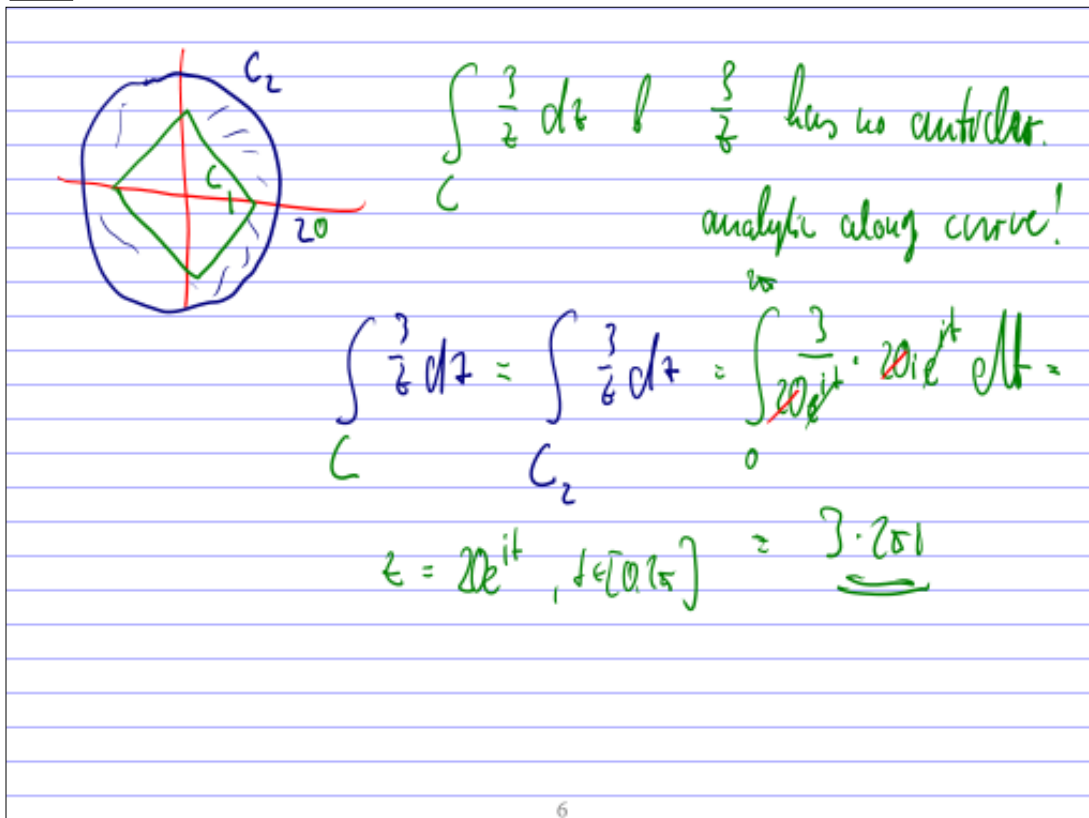 C₂
C₁
20
∫_C 3/z dz 3/z has no antider.
analytic along curve!
∫_C 3/z dz = ∫_{C₂} 3/z dz = ∫_0^{2π} 3/(20e^{it}) · 20ie^{it} dt =
z = 20e^{it}, t∈[0,2π] = 3·2πi
6